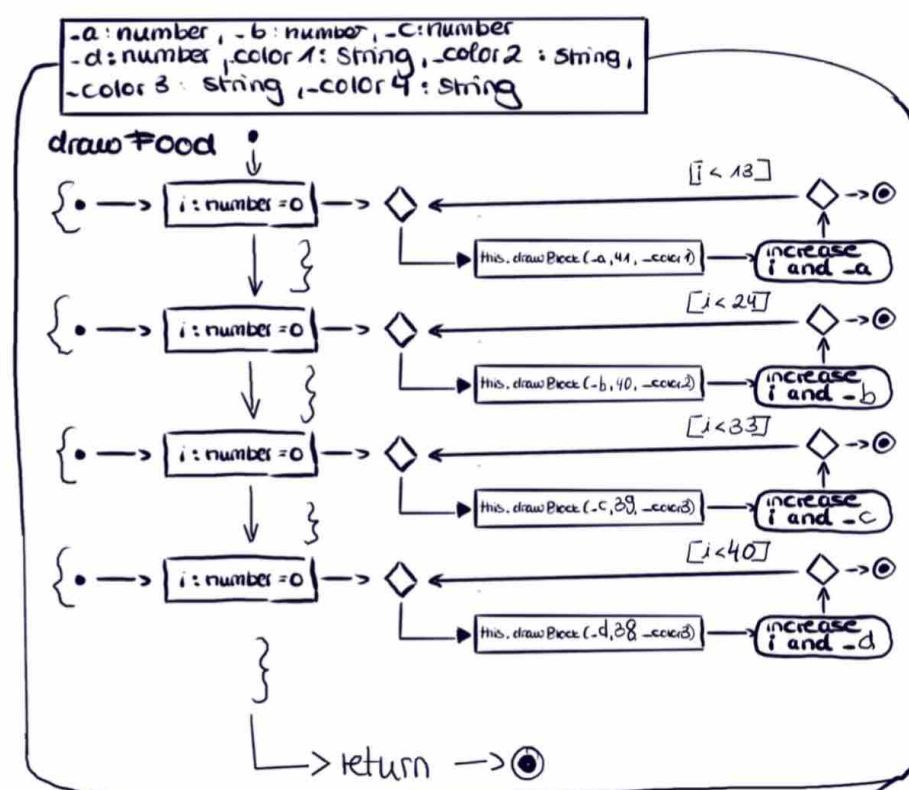 _a: number, _b: number, _c: number
_d: number, _color1: string, _color2: string,
_color3: string, _color4: string
drawFood
[i < 13]
{ i: number = 0
this.drawBlock(_a,41, _color1)
increase
i and _a
}
[i<24]
{ i: number = 0
this.drawBlock(_b,40, _color2)
increase
i and _b
}
[i<33]
{ i: number = 0
this.drawBlock(_c,39, _color3)
increase
i and _c
}
[i<40]
{ i: number = 0
this.drawBlock(_d,38 _color3)
increase
i and _d
}
return